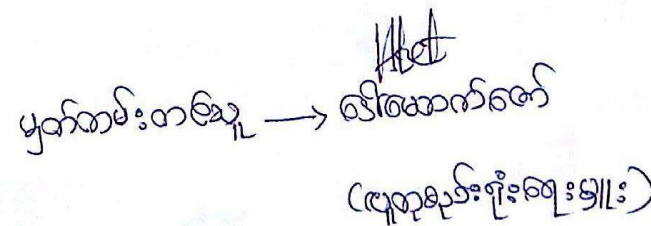 မှတ်တမ်းတင်သူ → ဒေါ်အောက်ဇော်
(လူထုစည်းရုံးရေးမှူး)